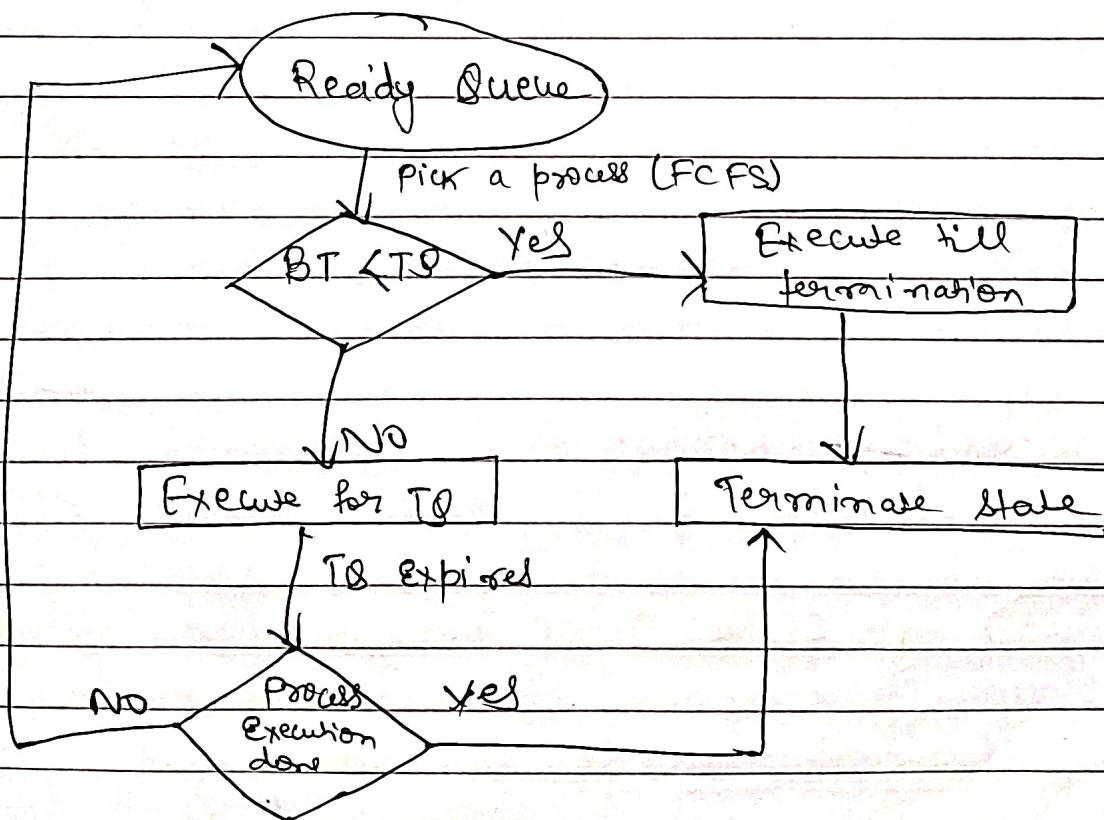 Ready Queue
Pick a process (FCFS)
BT < TQ
Yes
Execute till
termination
NO
Execute for TQ
Terminate State
TQ Expires
NO
Process
Execution
done
yes